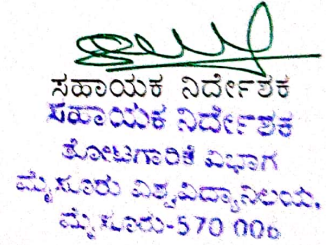 ಸಹಾಯಕ ನಿರ್ದೇಶಕ
ಸಹಾಯಕ ನಿರ್ದೇಶಕ
ತೋಟಗಾರಿಕೆ ವಿಭಾಗ
ಮೈಸೂರು ವಿಶ್ವವಿದ್ಯಾನಿಲಯ,
ಮೈಸೂರು-570 006